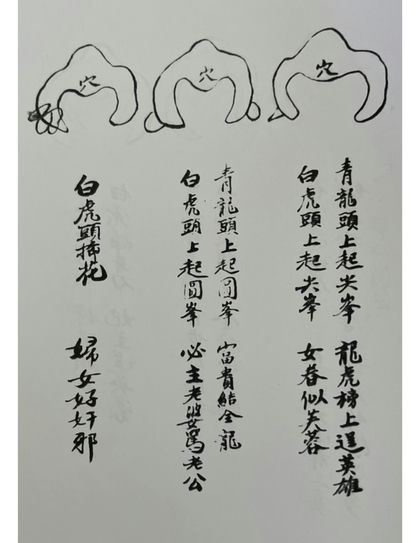 穴
穴
穴
青龍頭上起尖峯 龍虎榜上逞英雄
白虎頭上起尖峯 女眷似芙蓉
青龍頭上起圓峯 富貴結金龍
白虎頭上起圓峯 必主老婆罵老公
白虎頭插花 婦女好奸邪